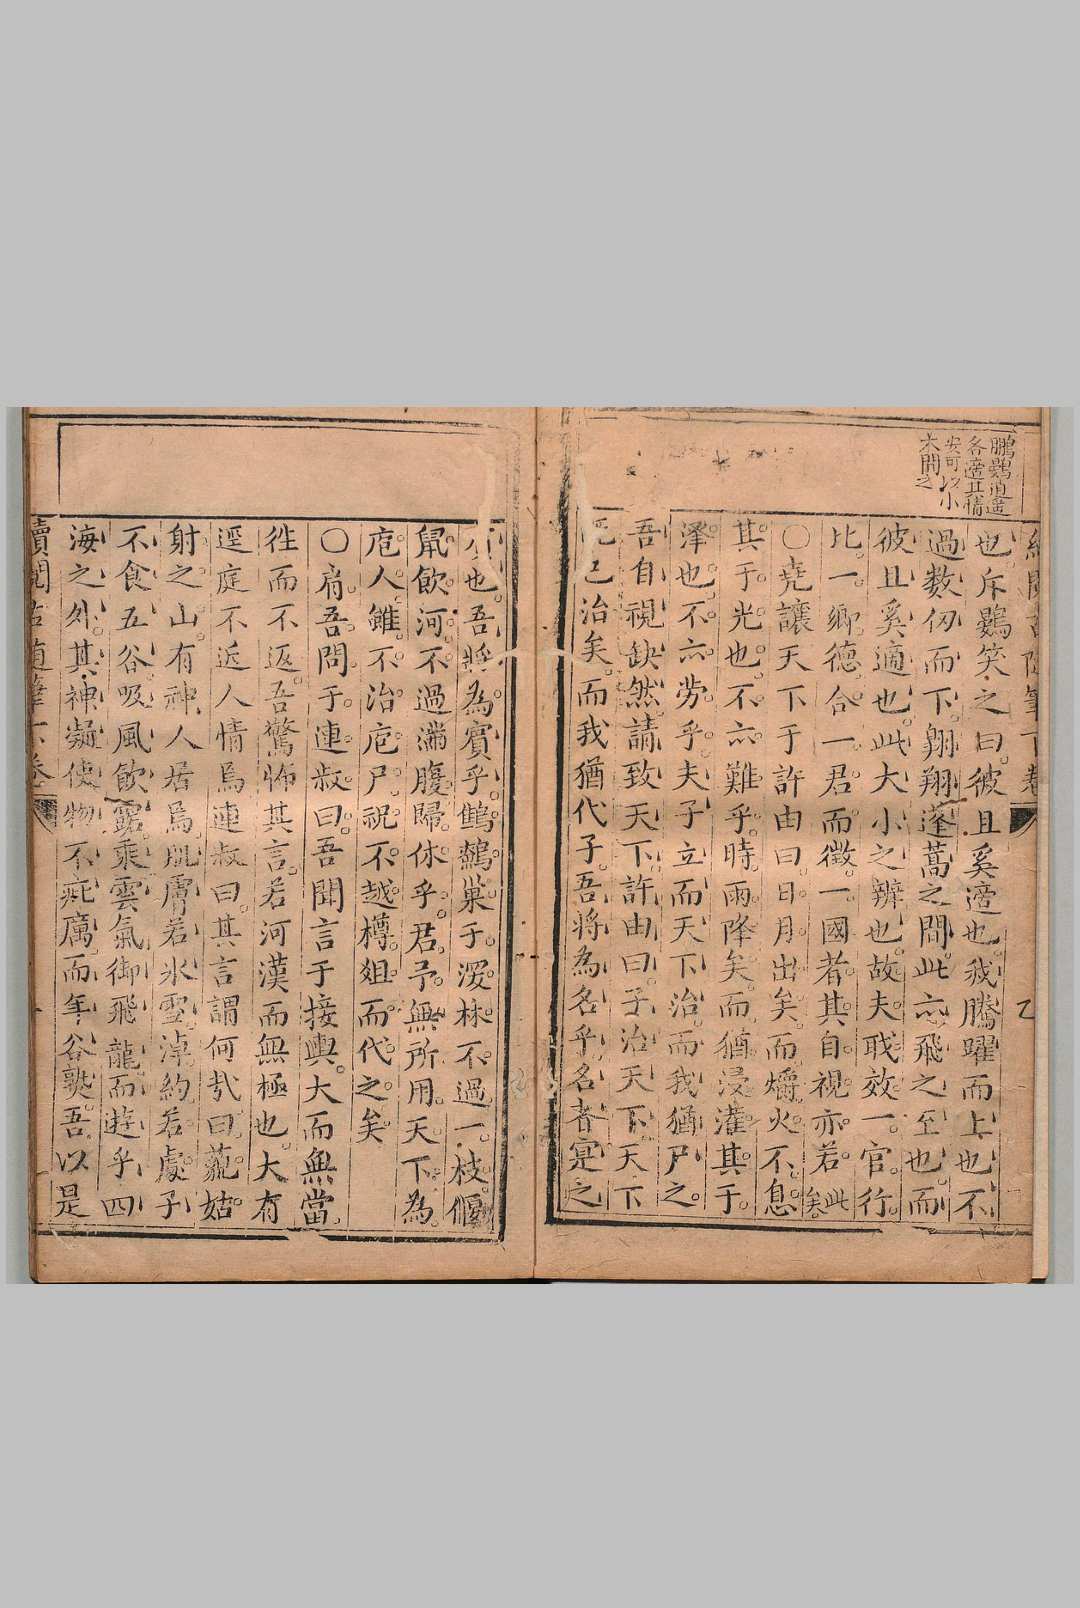 鵬鷃逍遥
各適其情
安可以小
大間之
也斥鷃笑之曰彼且奚適也我騰躍而上也不
過数仞而下翱翔蓬蒿之間此亦飛之至也而
彼且奚適也此大小之辨也故夫職效一官行
比一鄉徳合一君而徵一國者其自視亦若此矣
〇堯讓天下于許由曰日月出矣而爝火不息
其于光也不亦難乎時雨降矣而猶浸灌其于
澤也不亦劳乎夫子立而天下治而我猶尸之
吾自視缺然請致天下許由曰子治天下天下
已治矣而我猶代子吾将為名乎名者寔之
也吾將為賓乎鷦鷯巢于深林不過一枝偃
鼠飲河不過滿腹歸休乎君予無所用天下為
庖人雖不治庖尸祝不越樽俎而代之矣
〇肩吾問于連叔曰吾聞言于接輿大而無當
徃而不返吾驚怖其言若河漢而無極也大有
逕庭不近人情焉連叔曰其言謂何㢤曰藐姑
射之山有神人居焉肌膚若氷雪淖約若處子
不食五谷吸風飲露乘雲氣御飛龍而遊乎四
海之外其神凝使物不疵厲而年谷熟吾以是